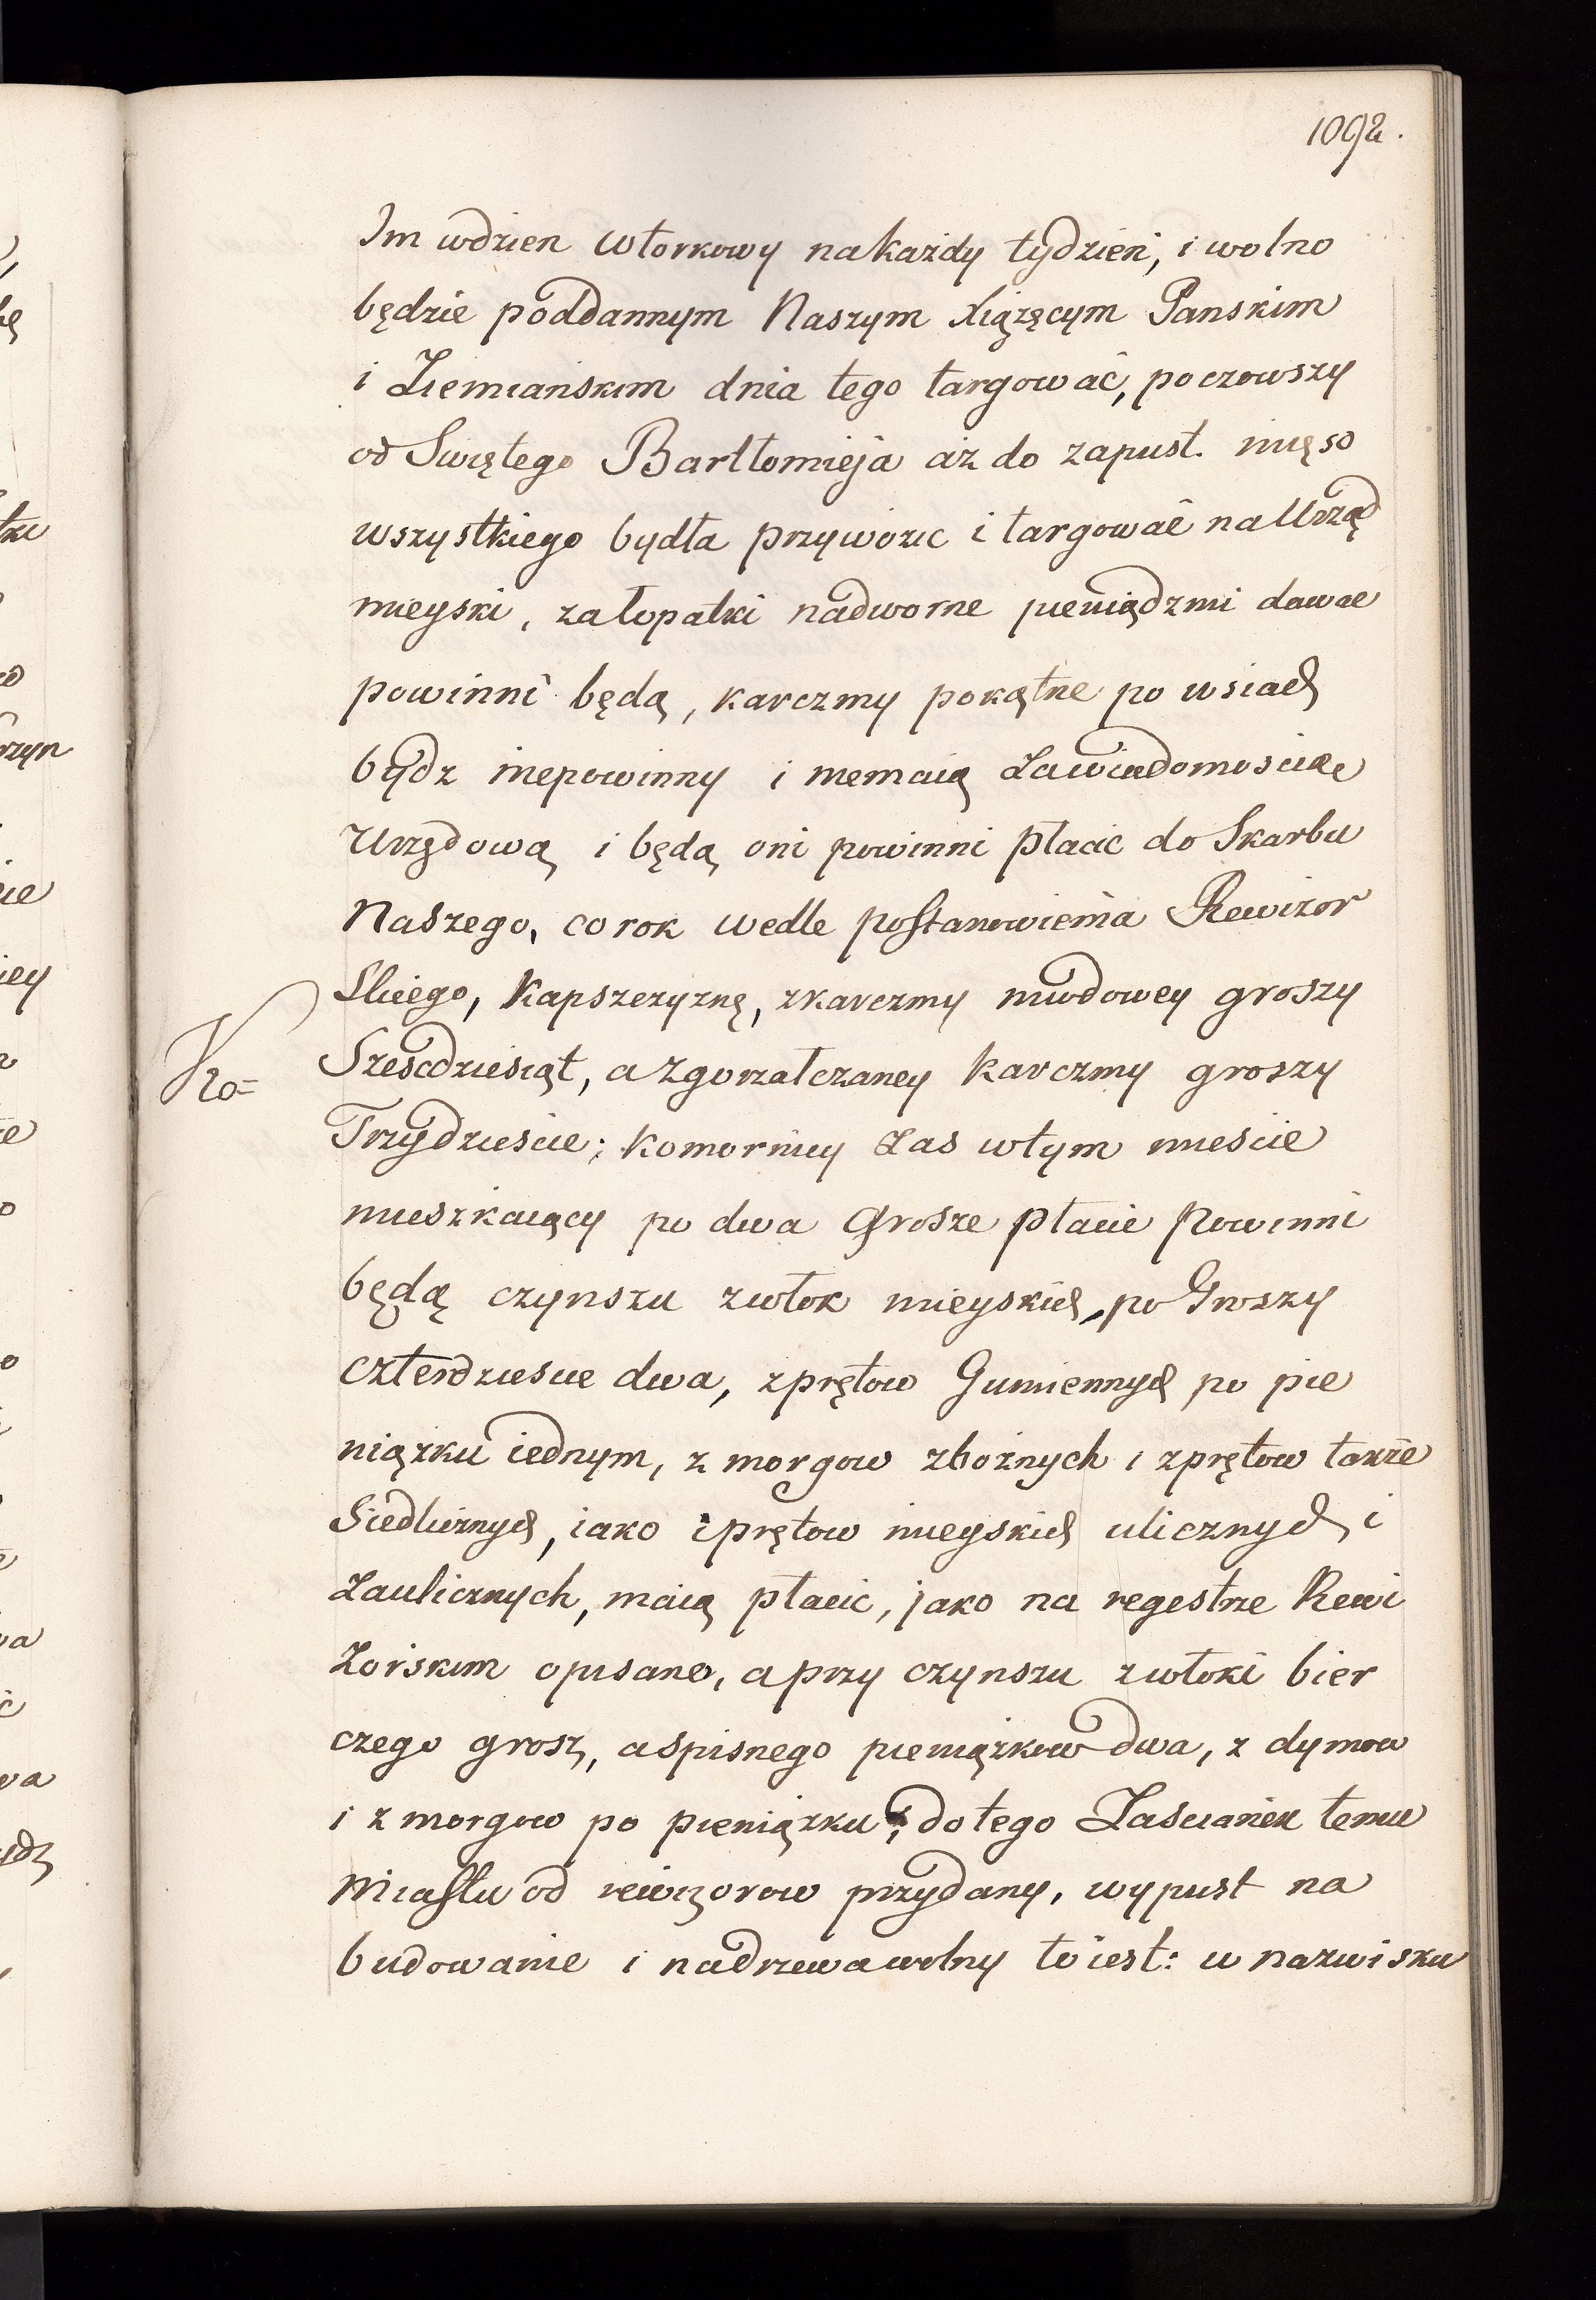 1092.
Im wdzien wtorkowy nakażdy tydzień, i wolno
będzie poddannym Naszym Xiążęcym Panskim
i Ziemianskim dnia tego targować, poczowszy
od Swiętego Bartłomieja aż do zapust. mięso
wszystkiego bydła przywozic i targować na Urząd
mieyski, załopatki nadworne pieniądzmi dawac
powinni będą, karczmy pokątne po wsiach
bydz niepowinny i niemaią
Urzędową i będą oni powinni płacic do Skarbu
Naszego, co rok wedle postanowienia Rewizor
Skiego, Kapszczyznę, zkarczmy miodowey groszy
Szescdziesiąt, a zgorzałczaney karczmy groszy
Trzydziescie; komornicy zas wtym miescie
mieszkaiący po dwa Grosze płacic Powinni
będą czynszu zwłok mieyskich, po Groszy
czterdziescie dwa, zprętow Gumiennych po pie
niążku iednym, z morgow zbożnych i zprętow także
Siedliznych, iako i prętow mieyskich ulicznych i
zaulicznych, maią płacic, jako na regestrze Rewi
zorskim opisano, aprzy czynszu zwłoki bier
czego grosz, aspisnego pieniążkow dwa, z dymow
i z morgow po pieniążku; dotego Zascianek temu
Miastu od rewizorow przydany, wypust na
budowanie i nadrzewa wolny toiest: w nazwisku
Ko=